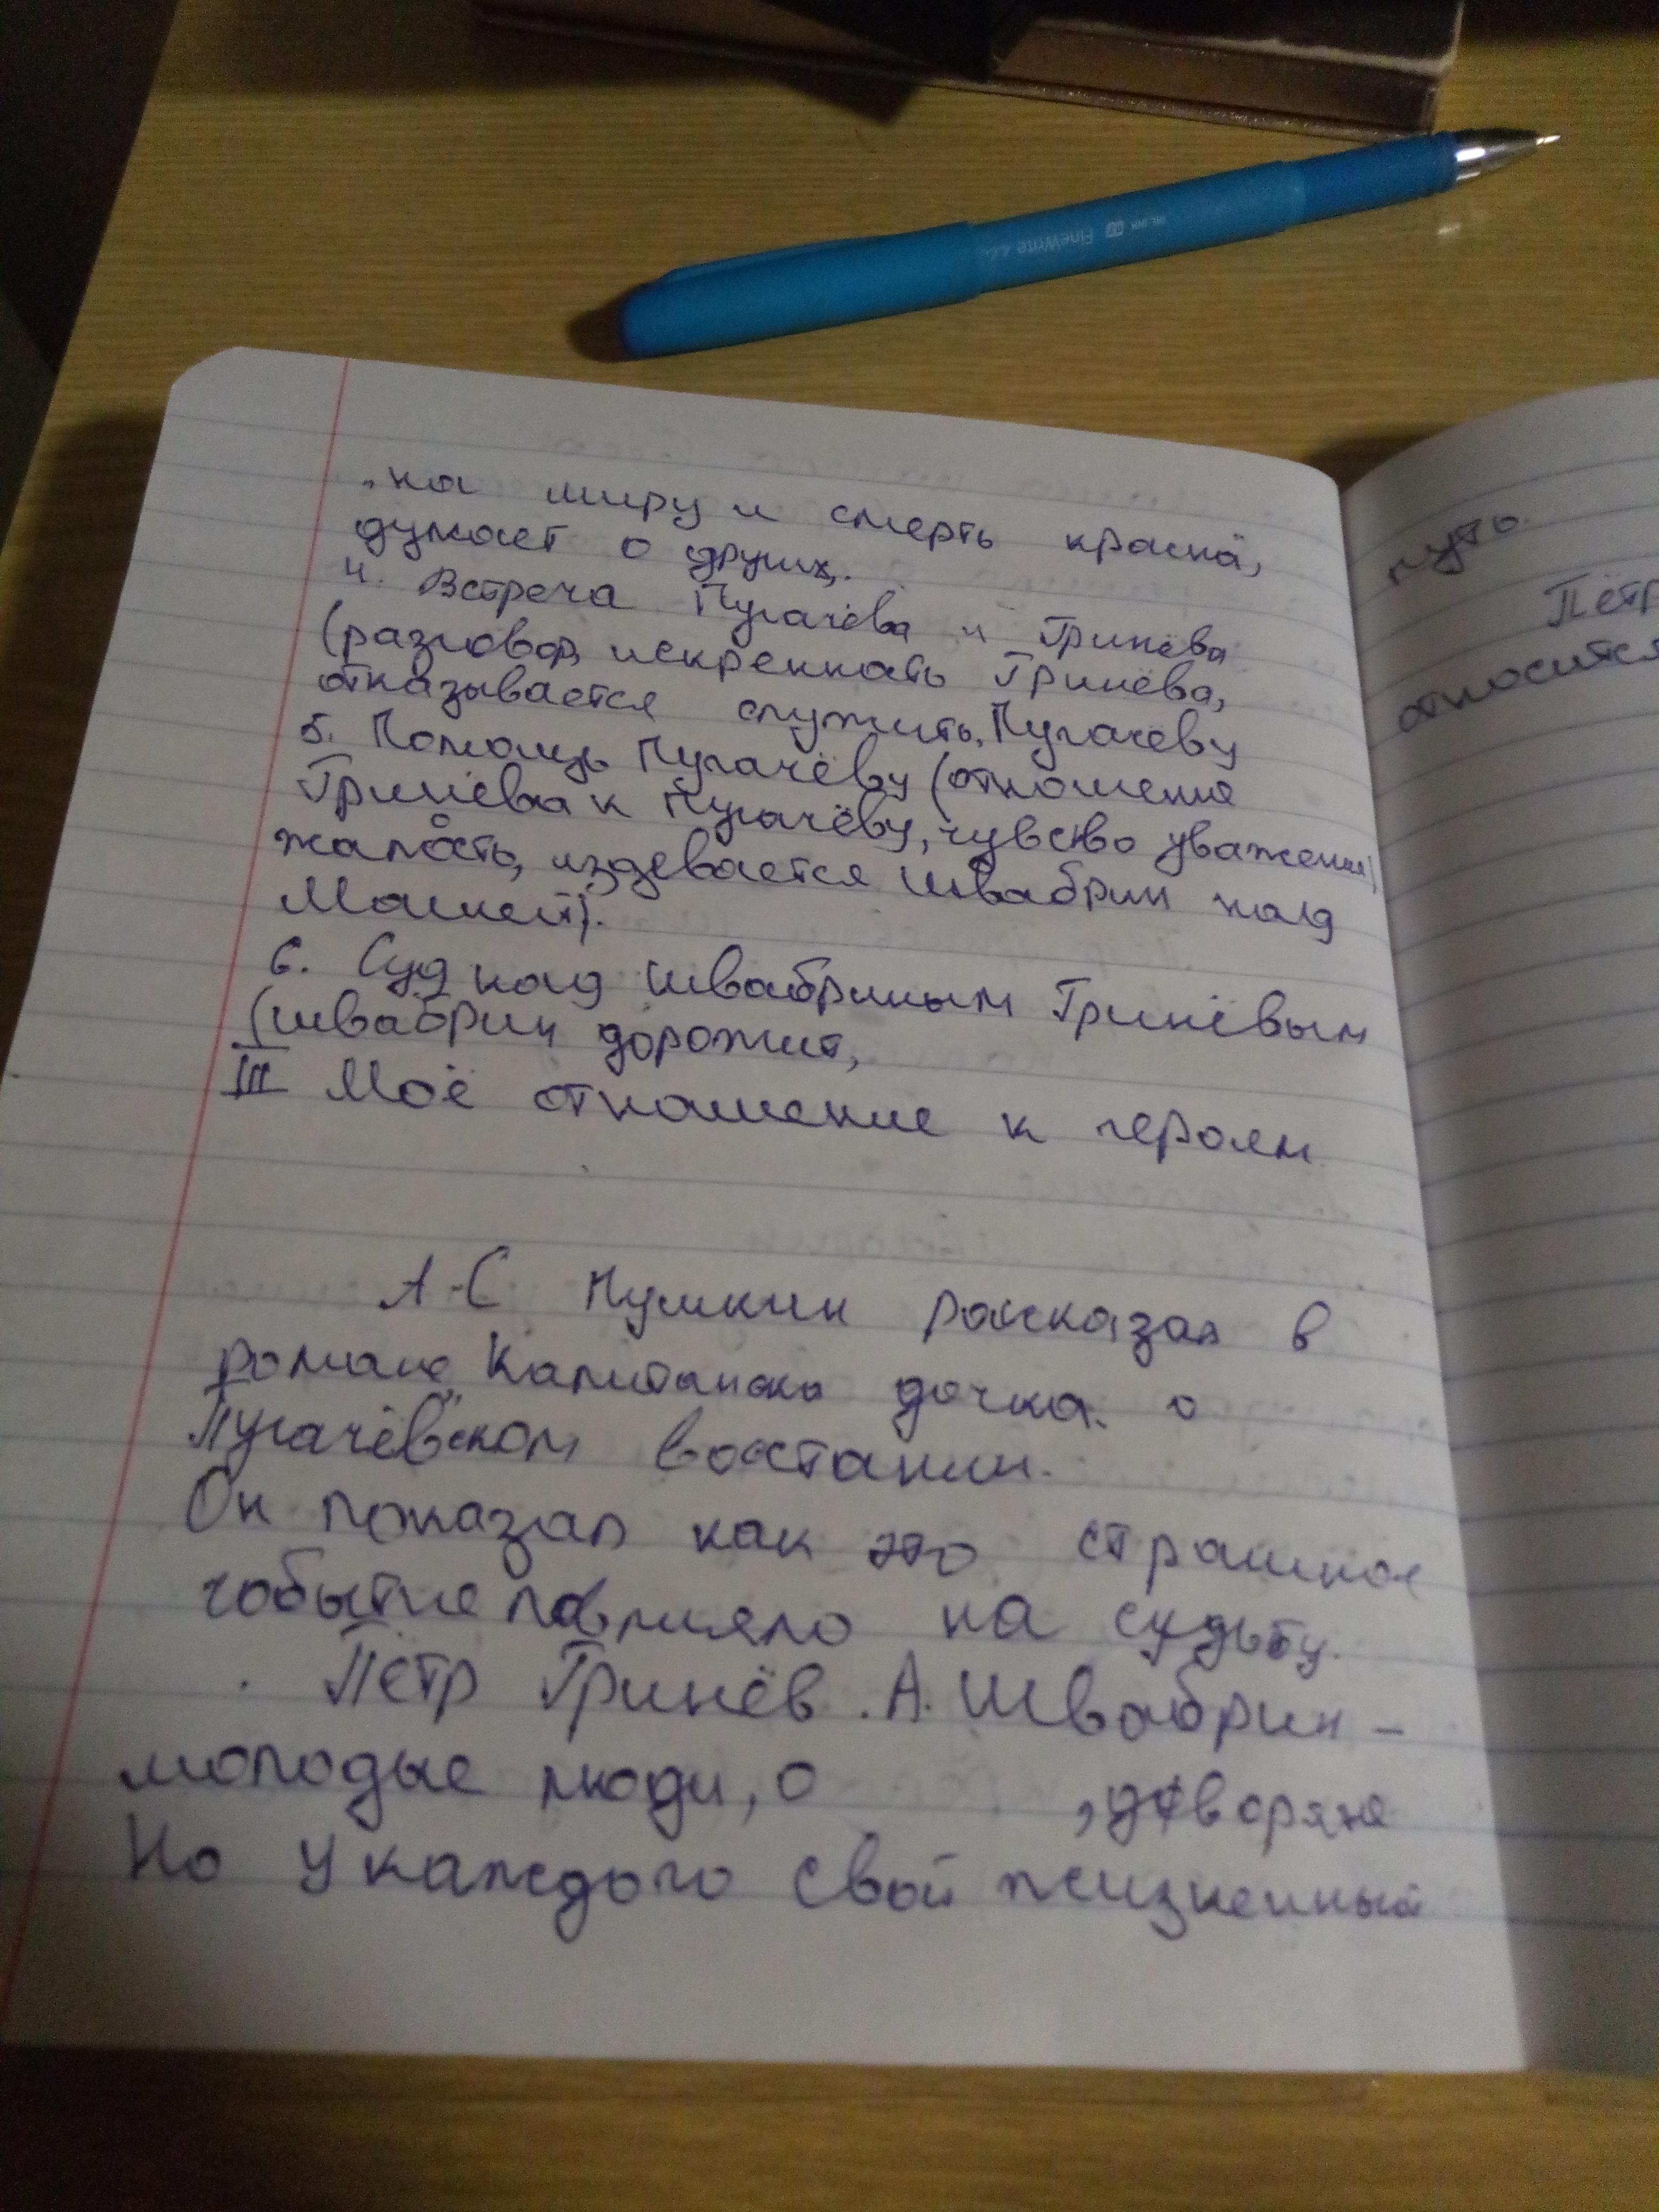 "на миру и смерть красна,
думает о других.
4. Встреча Пугачёва и Гринёва
(разговор, искренность Гринёва,
отказывается служить Пугачёву
5. Помощь Пугачёву (отношение
Гринёва к Пугачёву, чувство уважения,
жалость, издевается Швабрин над
Машей).
6. Суд над Швабриным Гринёвым
(Швабрин дорожит,
III Моё отношение к героям
А.С Пушкин рассказал в
романе "Капитанска дочка" о
Пугачёвском восстании.
Он показал как это страшное
событие повлияло на судьбу.
Пётр Гринёв. А. Швабрин -
молодые люди, о , дворяне
Но у каждого свой жизненный
путь.
Пётр
относится
FineWrite